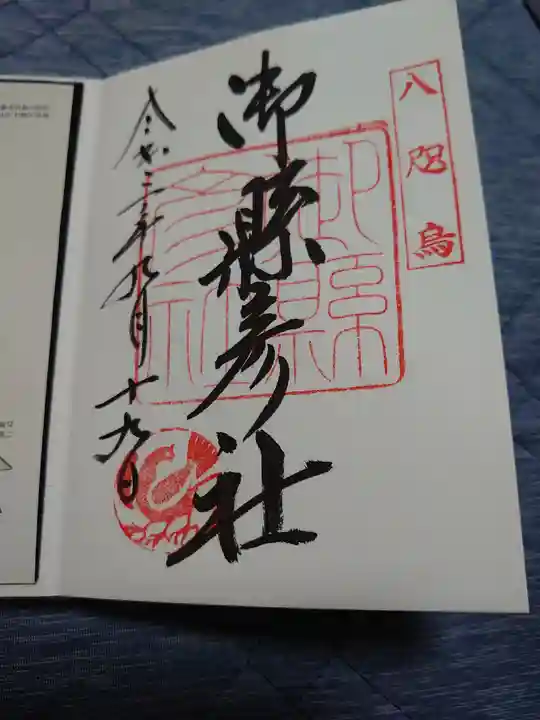 八咫烏
御縣彦社
御縣彦社
令和三年九月十九日